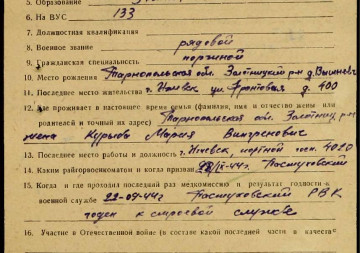 5. Образование
6. На ВУС 133
7. Должностная квалификация
8. Военное звание рядовой
9. Гражданская специальность портной
10. Место рождения Тарнопольская обл. Залотницкий р-н д. Вишневч
11. Последнее место жительства г. Ижевск ул. Фронтовая д. 400
12. Где проживает в настоящее время семья (фамилия, имя и отчество жены или
родителей и точный их адрес) Тарнопольская обл. Залотниц. р-н
жена Мария
13. Последнее место работы и должность г. Ижевск, портной 4020
14. Каким райгорвоенкоматом и когда призван /IX-44г. Пастуховский
15. Когда и где проходил последний раз медкомиссию и результат годности к
военной службе 22-09-44г Пастуховский РВК
годен к строевой службе
16. Участие в Отечественной войне (в составе какой последней части в качестве